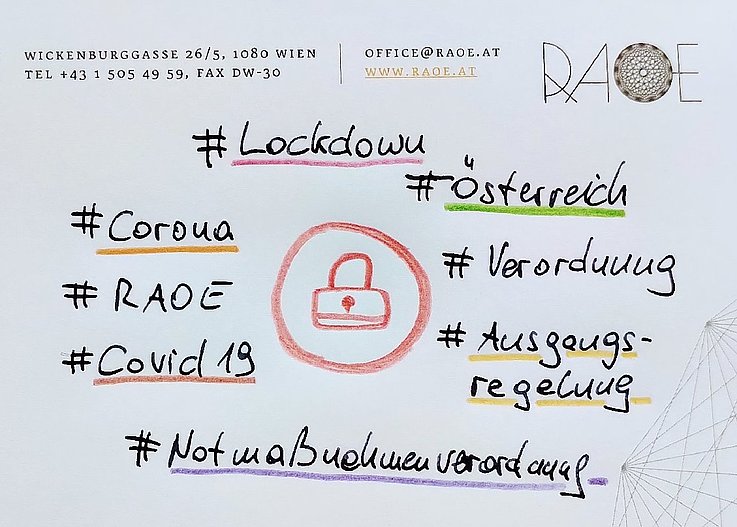 WICKENBURGGASSE 26/5, 1080 WIEN
TEL +43 1 505 49 59, FAX DW-30
OFFICE@RAOE.AT
WWW.RAOE.AT
RAOE
#Lockdown
#Österreich
#Corona
#Verordnung
#RAOE
#Ausgangs-
regelung
#Covid19
#Notmaßnahmenverordnung